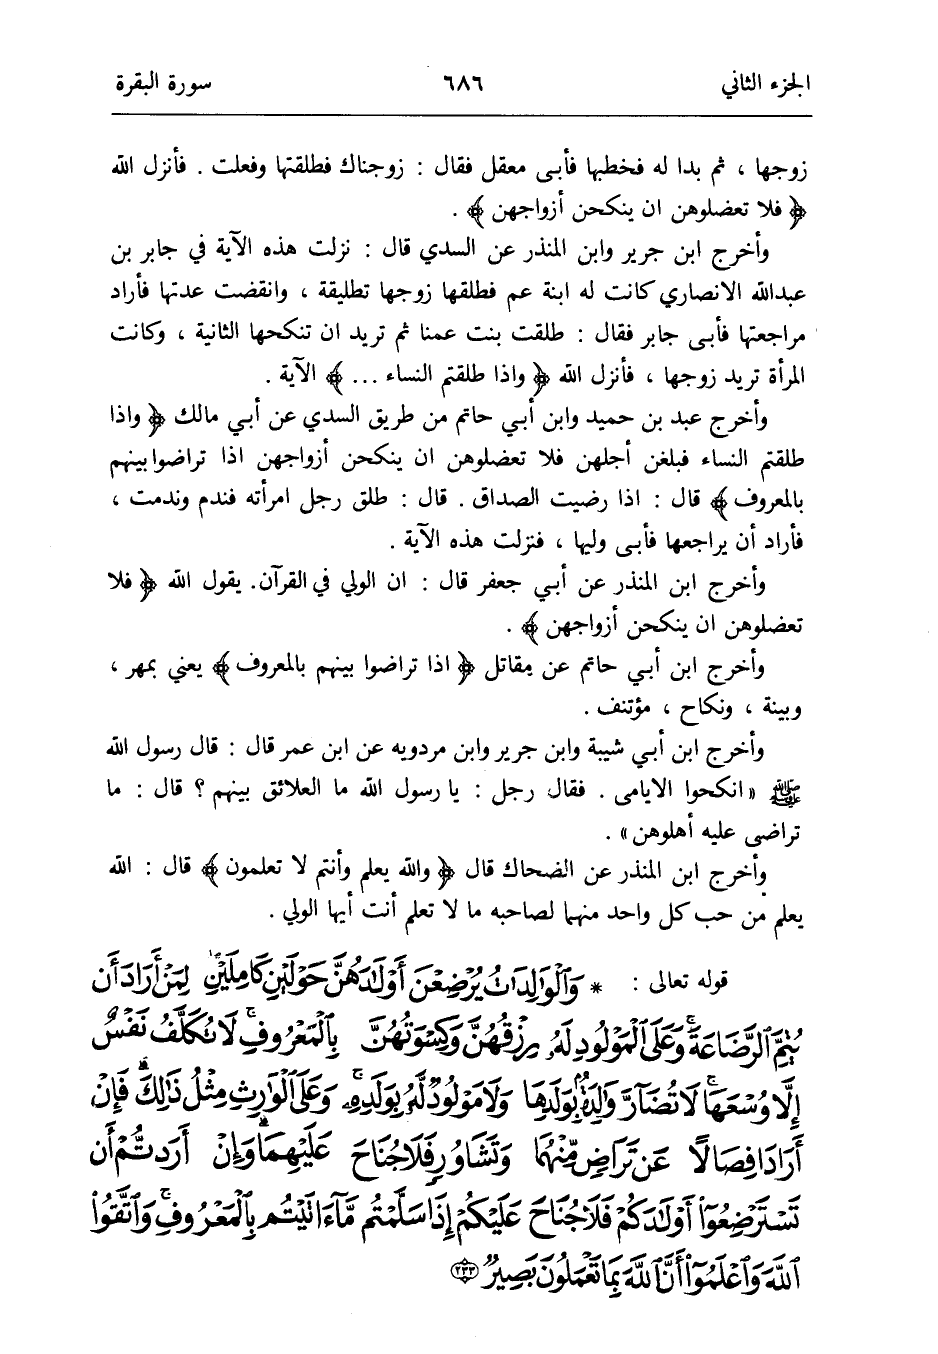 الجزء الثاني ٦٨٦ سورة البقرة
زوجها ، ثم بدا له فخطبها فأبى معقل فقال : زوجناك فطلقتها وفعلت . فأنزل الله
﴿ فلا تعضلوهن ان ينكحن أزواجهن ﴾ .
وأخرج ابن جرير وابن المنذر عن السدي قال : نزلت هذه الآية في جابر بن
عبدالله الانصاري كانت له ابنة عم فطلقها زوجها تطليقة ، وانقضت عدتها فأراد
مراجعتها فأبى جابر فقال : طلقت بنت عمنا ثم تريد ان تنكحها الثانية ، وكانت
المرأة تريد زوجها ، فأنزل الله ﴿ واذا طلقتم النساء ... ﴾ الآية .
وأخرج عبد بن حميد وابن أبي حاتم من طريق السدي عن أبي مالك ﴿ واذا
طلقتم النساء فبلغن أجلهن فلا تعضلوهن ان ينكحن أزواجهن اذا تراضوا بينهم
بالمعروف ﴾ قال : اذا رضيت الصداق . قال : طلق رجل امرأته فندم وندمت ،
فأراد أن يراجعها فأبى وليها ، فنزلت هذه الآية .
وأخرج ابن المنذر عن أبي جعفر قال : ان الولي في القرآن. يقول الله ﴿ فلا
تعضلوهن ان ينكحن أزواجهن ﴾ .
وأخرج ابن أبي حاتم عن مقاتل ﴿ اذا تراضوا بينهم بالمعروف ﴾ يعني بمهر ،
وبينة ، ونكاح ، مؤتنف .
وأخرج ابن أبي شيبة وابن جرير وابن مردويه عن ابن عمر قال : قال رسول الله
ﷺ « انكحوا الايامى . فقال رجل : يا رسول الله ما العلائق بينهم ؟ قال : ما
تراضى عليه أهلوهن » .
وأخرج ابن المنذر عن الضحاك قال ﴿ والله يعلم وأنتم لا تعلمون ﴾ قال : الله
يعلم من حب كل واحد منهما لصاحبه ما لا تعلم أنت أيها الولي .
قوله تعالى : * وَٱلْوَٰلِدَٰتُ يُرْضِعْنَ أَوْلَٰدَهُنَّ حَوْلَيْنِ كَامِلَيْنِ لِمَنْ أَرَادَ أَن
يُتِمَّ ٱلرَّضَاعَةَ ۚ وَعَلَى ٱلْمَوْلُودِ لَهُۥ رِزْقُهُنَّ وَكِسْوَتُهُنَّ بِٱلْمَعْرُوفِ ۚ لَا تُكَلَّفُ نَفْسٌ
إِلَّا وُسْعَهَا ۚ لَا تُضَآرَّ وَٰلِدَةٌۢ بِوَلَدِهَا وَلَا مَوْلُودٌ لَّهُۥ بِوَلَدِهِۦ ۚ وَعَلَى ٱلْوَارِثِ مِثْلُ ذَٰلِكَ ۗ فَإِنْ
أَرَادَا فِصَالًا عَن تَرَاضٍ مِّنْهُمَا وَتَشَاوُرٍ فَلَا جُنَاحَ عَلَيْهِمَا ۗ وَإِنْ أَرَدتُّمْ أَن
تَسْتَرْضِعُوٓا۟ أَوْلَٰدَكُمْ فَلَا جُنَاحَ عَلَيْكُمْ إِذَا سَلَّمْتُم مَّآ ءَاتَيْتُم بِٱلْمَعْرُوفِ ۗ وَٱتَّقُوا۟
ٱللَّهَ وَٱعْلَمُوٓا۟ أَنَّ ٱللَّهَ بِمَا تَعْمَلُونَ بَصِيرٌ ٢٣٣